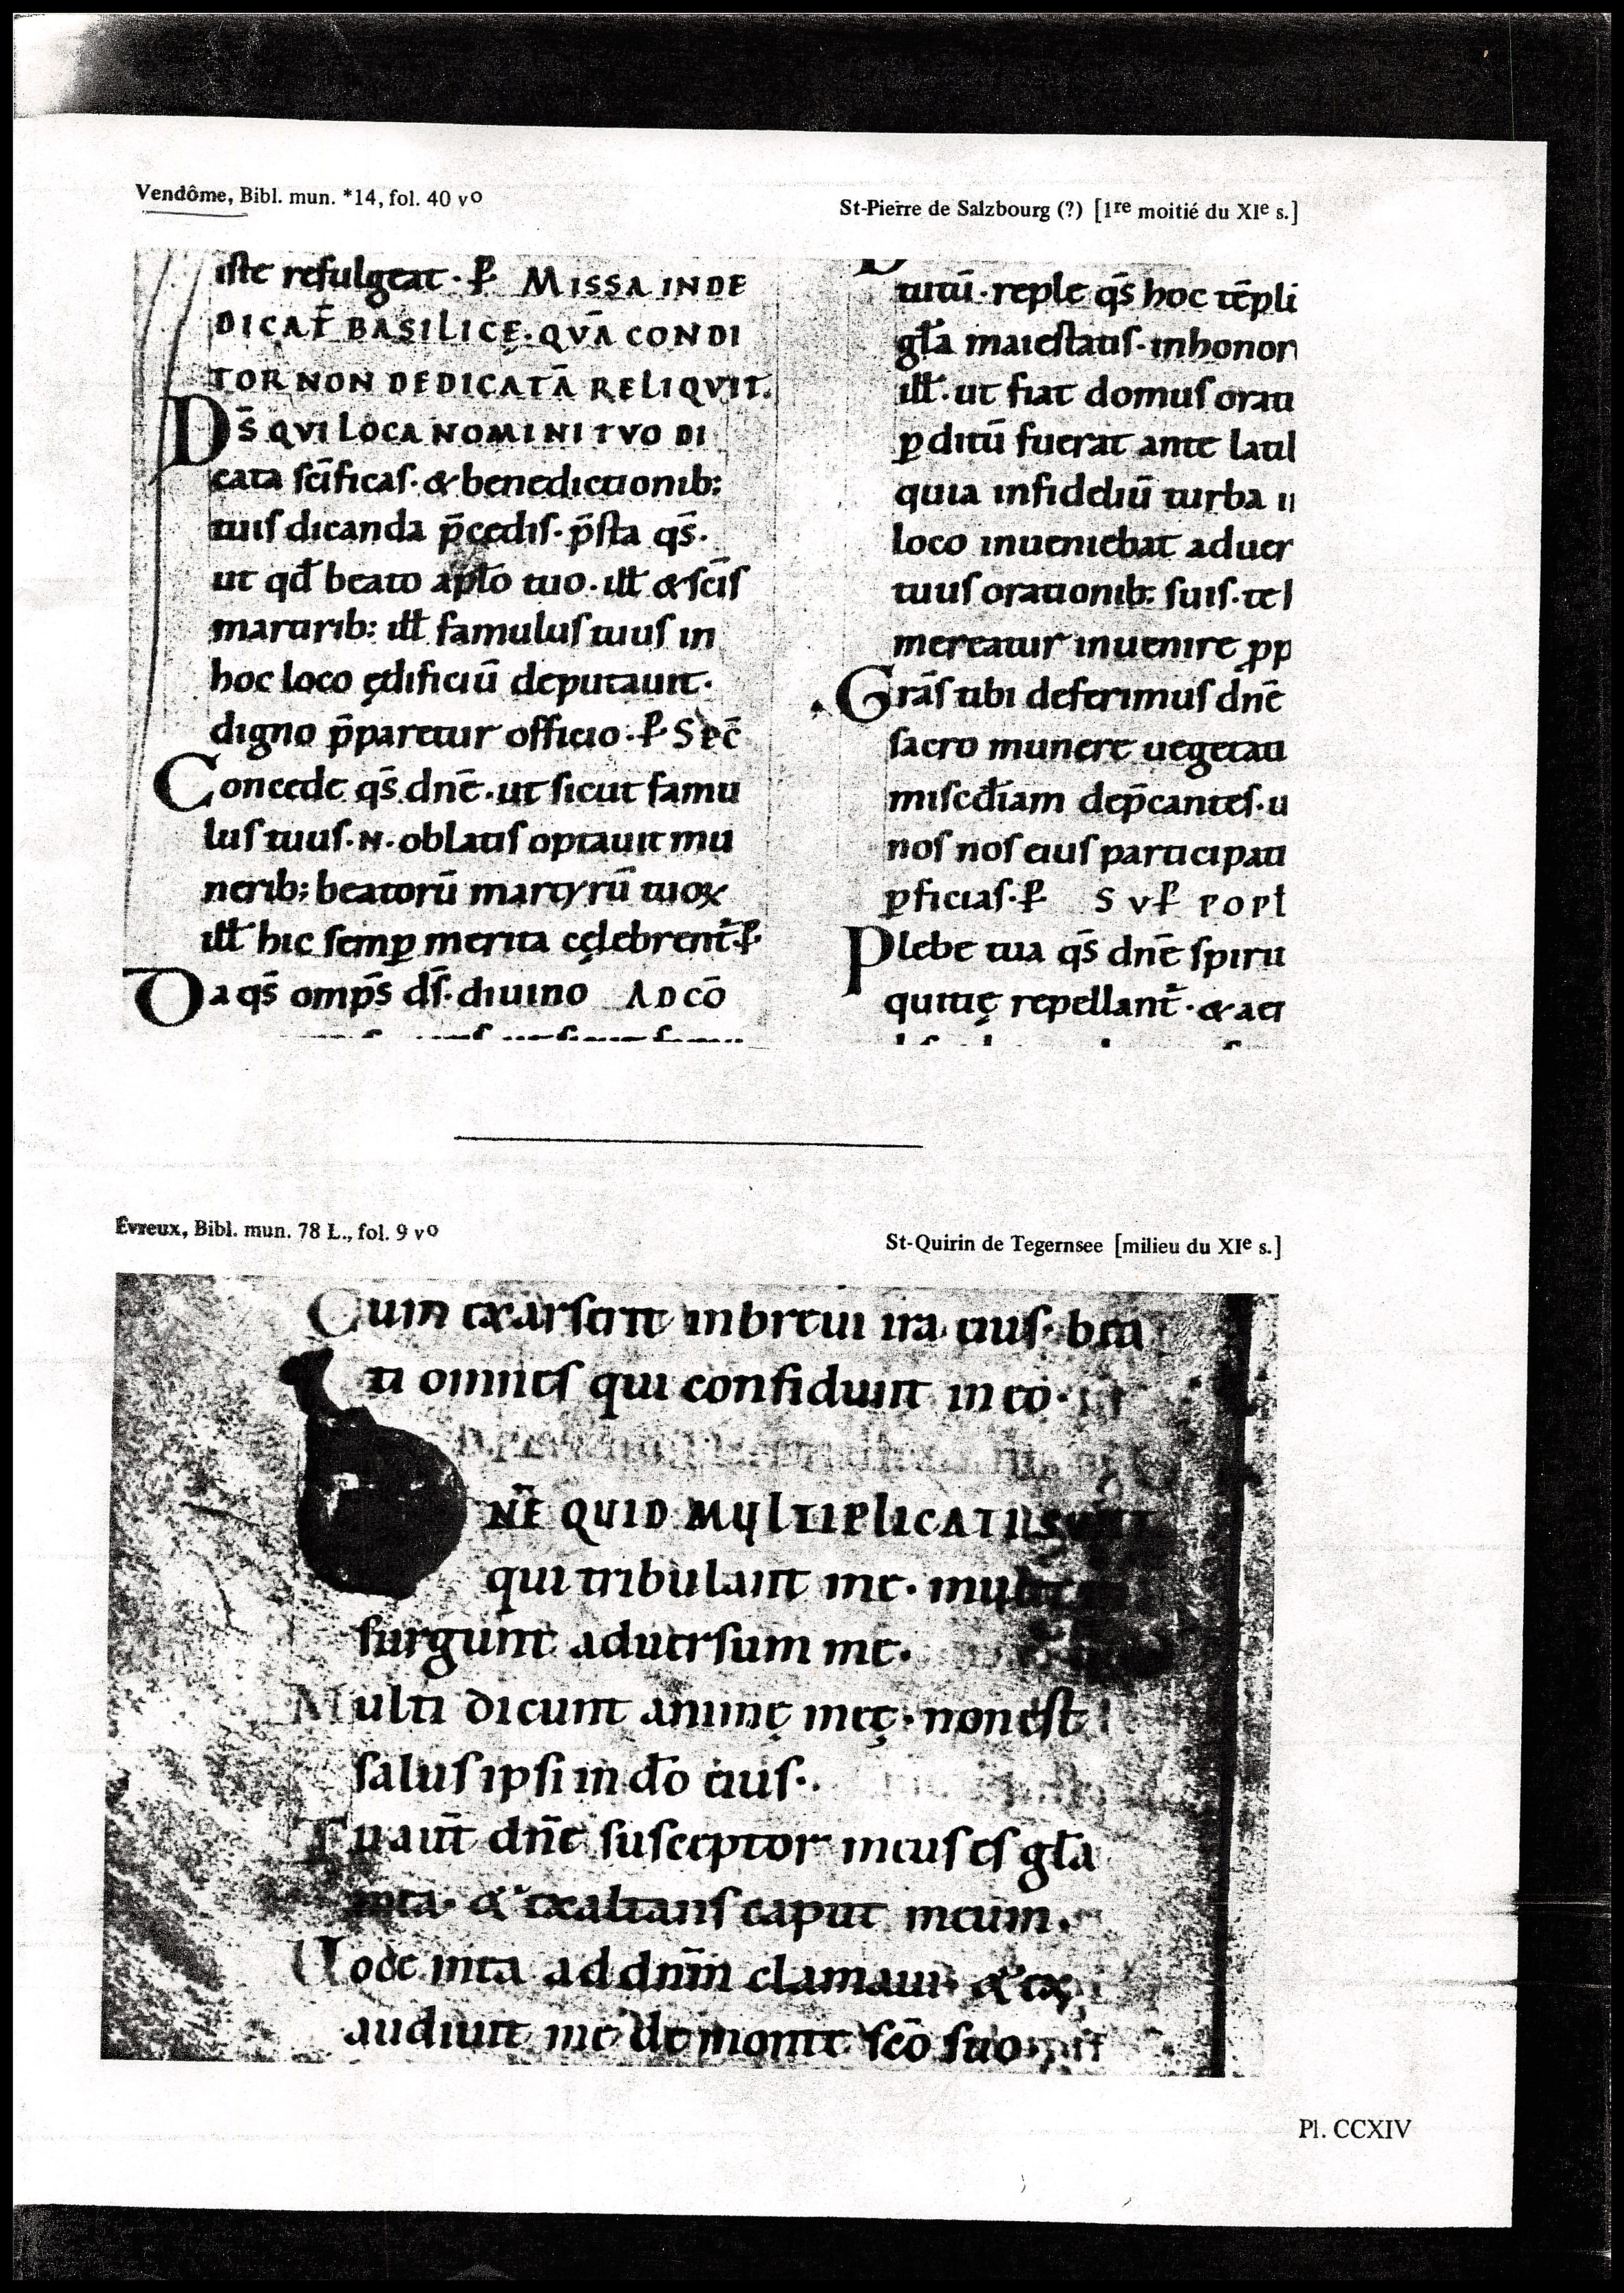 Vendôme, Bibl. mun. *14, fol. 40 vº
St-Pierre de Salzbourg (?) [1re moitié du XIe s.]
iste refulgeat · P̄ MISSA IN DE
DICAT̄ BASILICE · QVĀ CONDI
TOR NON DEDICATĀ RELIQVIT.
DS̄ QVI LOCA NOMINI TVO DI
cata sc̄ificas · & benedictionib:
tuis dicanda p̄cedis · p̄sta qs̄ ·
ut qd̄ beato ap̄lo tuo · ill̄ & sc̄is
martirib: ill̄ famulus tuus in
hoc loco ędificiū deputauit ·
digno p̄paretur officio · P̄ SEC̄
Concede qs̄ dn̄e · ut sicut famu
lus tuus · N · oblatis optauit mu
nerib; beatorū martyrū tuoꝝ
ill̄ hic semꝑ merita cęlebrent̄ · P̄
Da qs̄ omps̄ ds̄ · diuino AD CŌ
tutū · reple qs̄ hoc tēpli
gl̄a maiestatis · in honor
ill̄ · ut fiat domus orati
ꝑditū fuerat ante latil
quia infideliū turba i
loco inueniebat aduer
tuus orationib: suis · te
mereatur inuenire ꝓp
Grās tibi deferimus dn̄e
sacro munere uegetati
miscd̄iam dep̄cantes · u
nos nos eius participati
ꝑficias · P̄ SVP̄ POPL
Plebe tua qs̄ dn̄e spiritu
quitię repellant̄ · & aei
Évreux, Bibl. mun. 78 L., fol. 9 vº
St-Quirin de Tegernsee [milieu du XIe s.]
Cum exarserit in breui ira eius · bea
ti omnes qui confidunt in eo ·
DN̄E QUID MULTIPLICATI SUNT
qui tribulant me · multi
surgunt aduersum me ·
Multi dicunt animę meę · non est
salus ipsi in dō eius ·
Tu aut̄ dn̄e susceptor meus es gl̄a
mea · & exaltans caput meum ·
Uoce mea ad dnm̄ clamaui · & ex
audiuit me de monte sc̄o suo
Pl. CCXIV